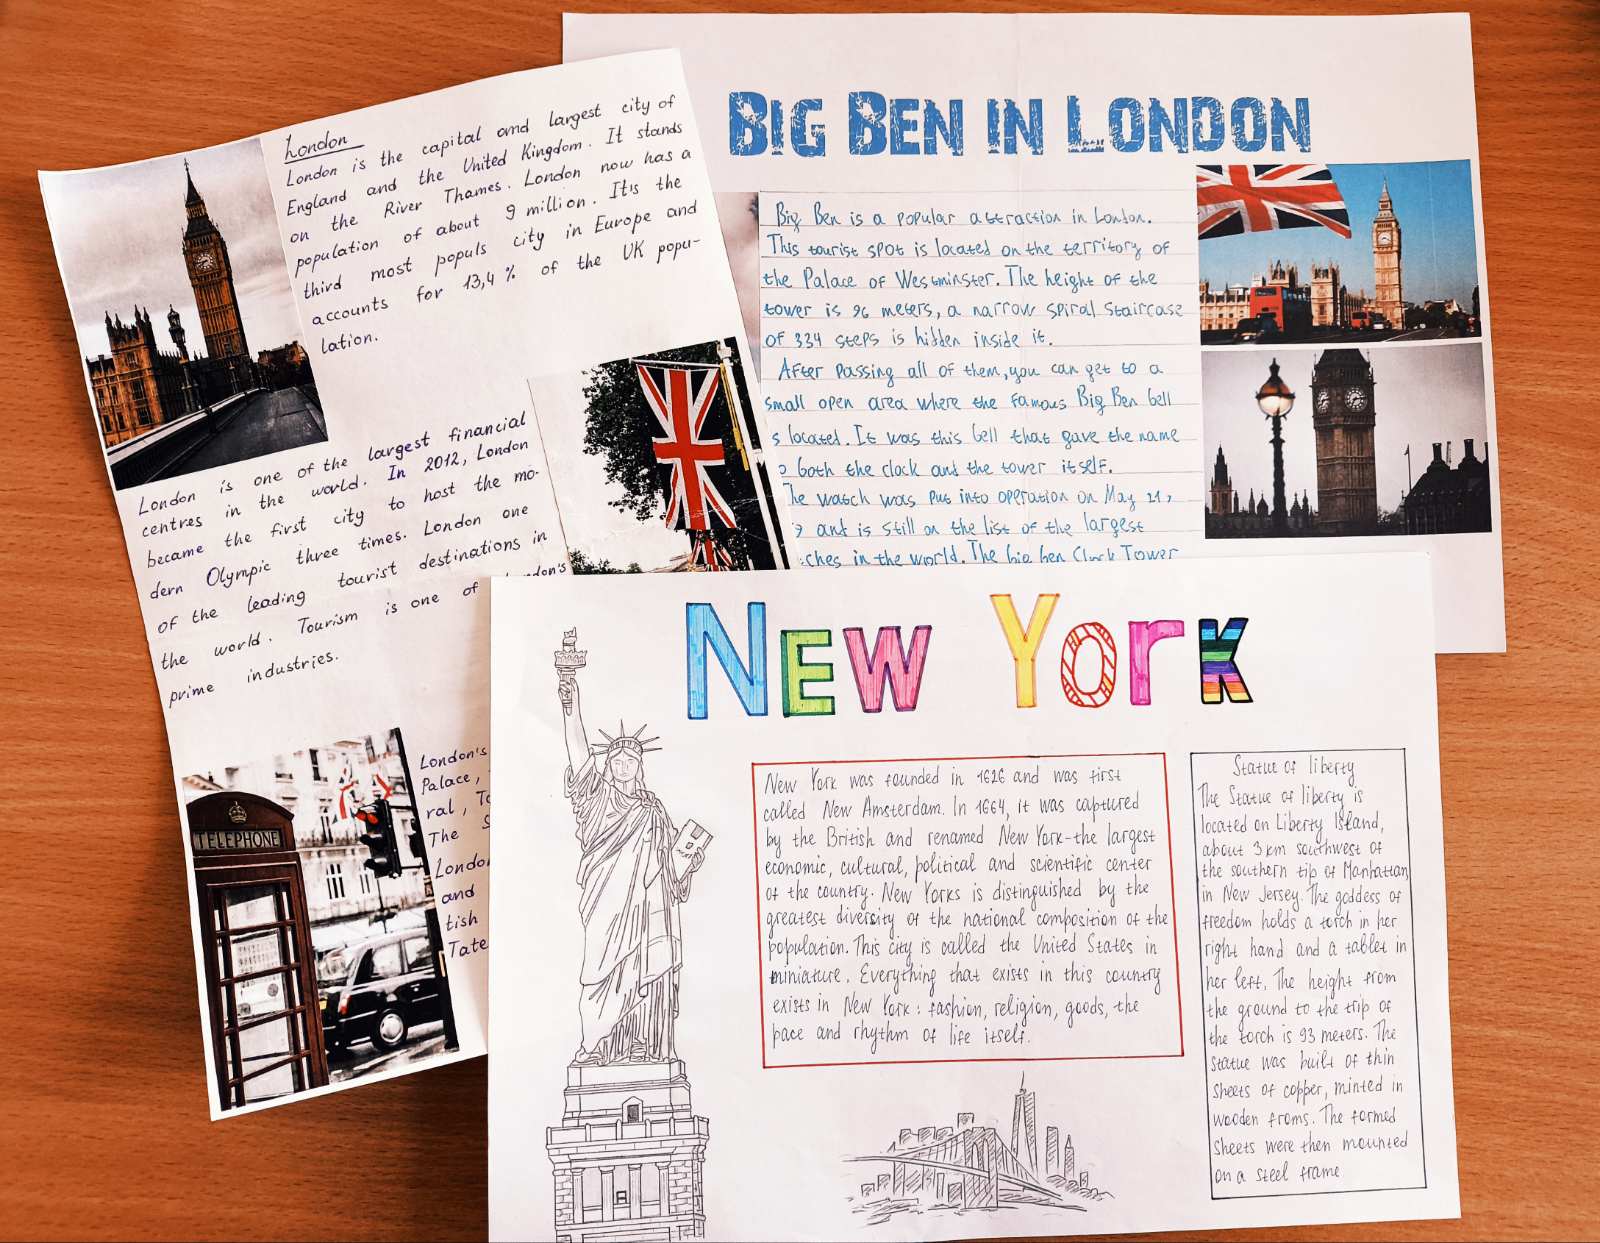 London
London is the capital and largest city of
England and the United Kingdom. It stands
on the River Thames. London now has a
population of about 9 million. It's the
third most populs city in Europe and
accounts for 13,4% of the UK popu-
lation.
London is one of the largest financial
centres in the world. In 2012, London
became the first city to host the mo-
dern Olympic three times. London one
of the leading tourist destinations in
the world. Tourism is one of London's
prime industries.
TELEPHONE
London's
Palace,
ral,
The
London
and
tish
Tate
BIG BEN IN LONDON
Big Ben is a popular attraction in London.
This tourist spot is located on the territory of
the Palace of Westminster. The height of the
tower is 96 meters, a narrow spiral staircase
of 334 steps is hidden inside it.
After passing all of them, you can get to a
small open area where the famous Big Ben bell
s located. It was this bell that gave the name
o both the clock and the tower itself.
The watch was put into operation on May 21,
9 and is still on the list of the largest
ches in the world. The big ben Clock Tower
NEW YORK
New York was founded in 1626 and was first
called New Amsterdam. In 1664, it was captured
by the British and renamed New York-the largest
economic, cultural, political and scientific center
of the country. New Yorks is distinguished by the
greatest diversity of the national composition of the
population. This city is called the United States in
miniature. Everything that exists in this country
exists in New York: fashion, religion, goods, the
pace and rhythm of life itself.
Statue of liberty
The Statue of liberty is
located on Liberty Island,
about 3 km southwest of
the southern tip of Manhattan,
in New Jersey. The goddess of
freedom holds a torch in her
right hand and a tablet in
her left. The height from
the ground to the trip of
the torch is 93 meters. The
statue was built of thin
sheets of copper, minted in
wooden froms. The formed
sheets were then mounted
on a steel frame